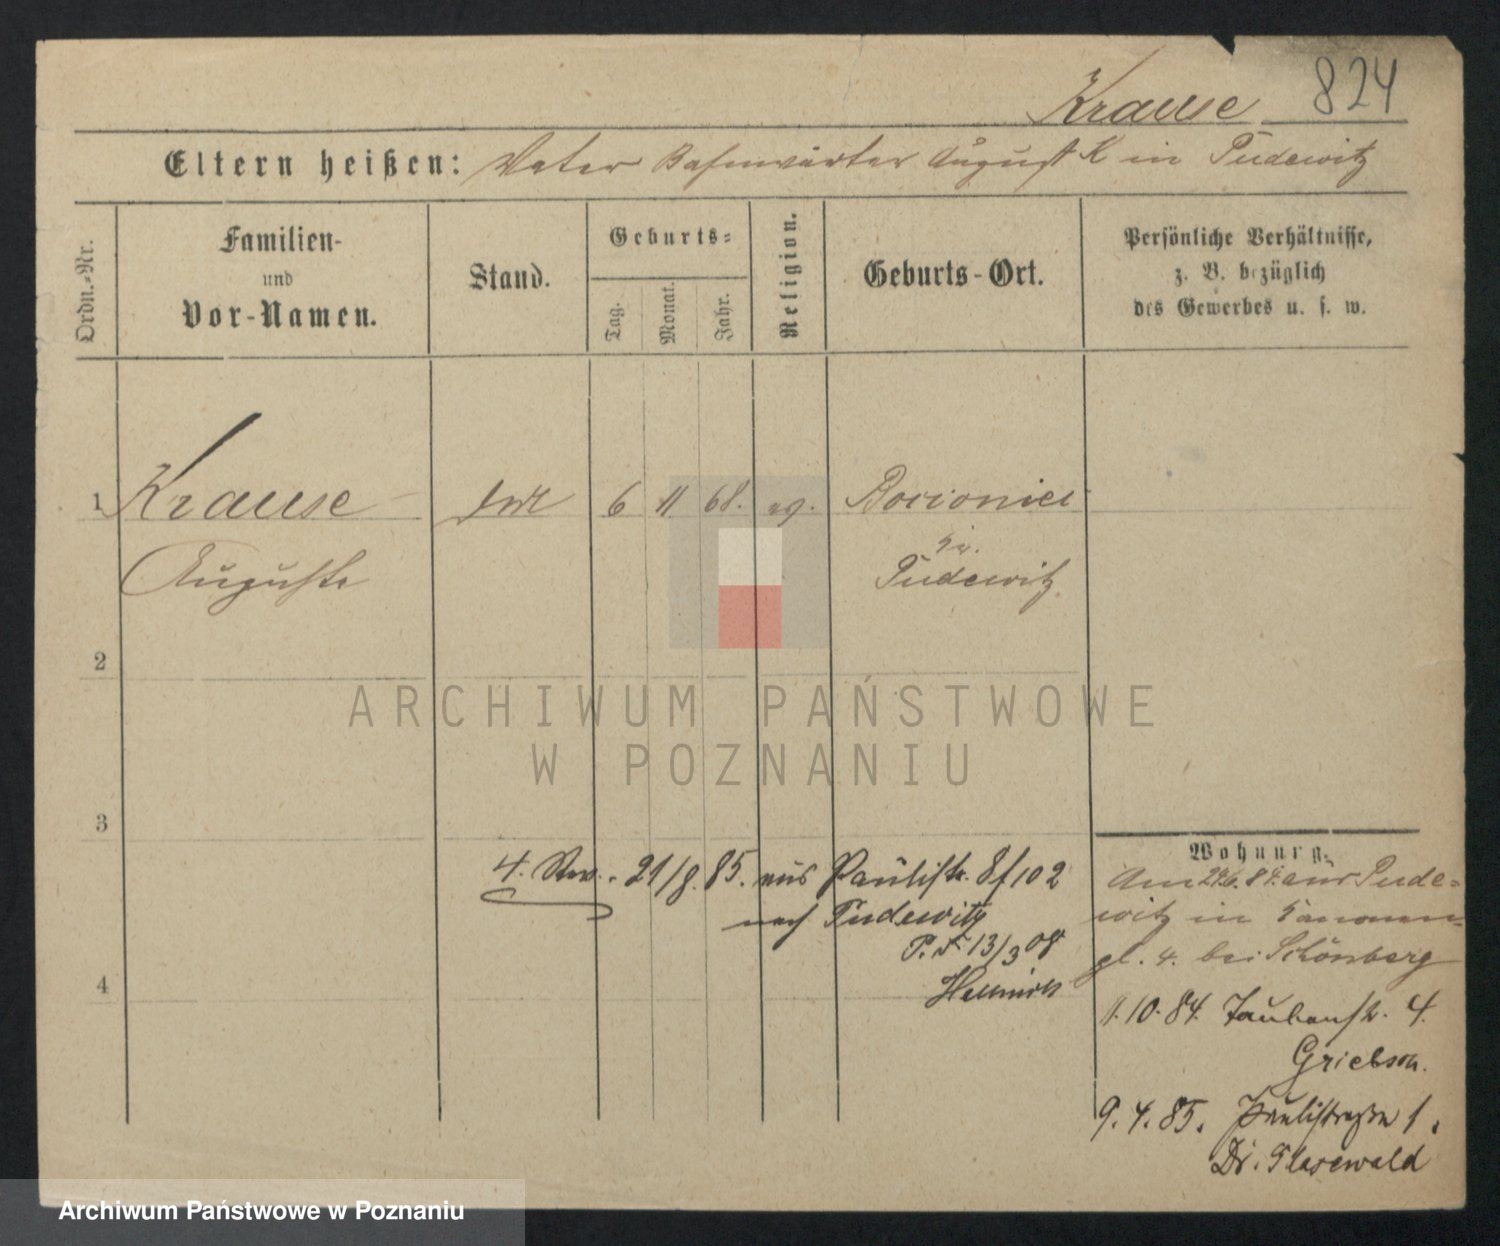 Krause 824
Eltern heißen: Vater Bahnwärter August K in Pudewitz
Ordn.-Nr.
Familien-
und
Vor-Namen.
Stand.
Geburts-
Tag.
Monat.
Jahr.
Religion.
Geburts-Ort.
Persönliche Verhältnisse,
z. B. bezüglich
des Gewerbes u. s. w.
1 Krause 6 11 68. ev.
Auguste Pudewitz
2
ARCHIWUM PAŃSTWOWE
W POZNANIU
3
Wohnung.
4. 21/8. 85. aus Paulistr. 8 f 102
nach Pudewitz
P. 13/3 08
Am 24.6.84. aus Pude-
witz in Kanonen-
pl. 4. bei Schönberg
4
1.10.84. Taubenstr. 4.
Griebsch.
9.4.85. Paulistraße 1.
Dr. Glasewald
Archiwum Państwowe w Poznaniu